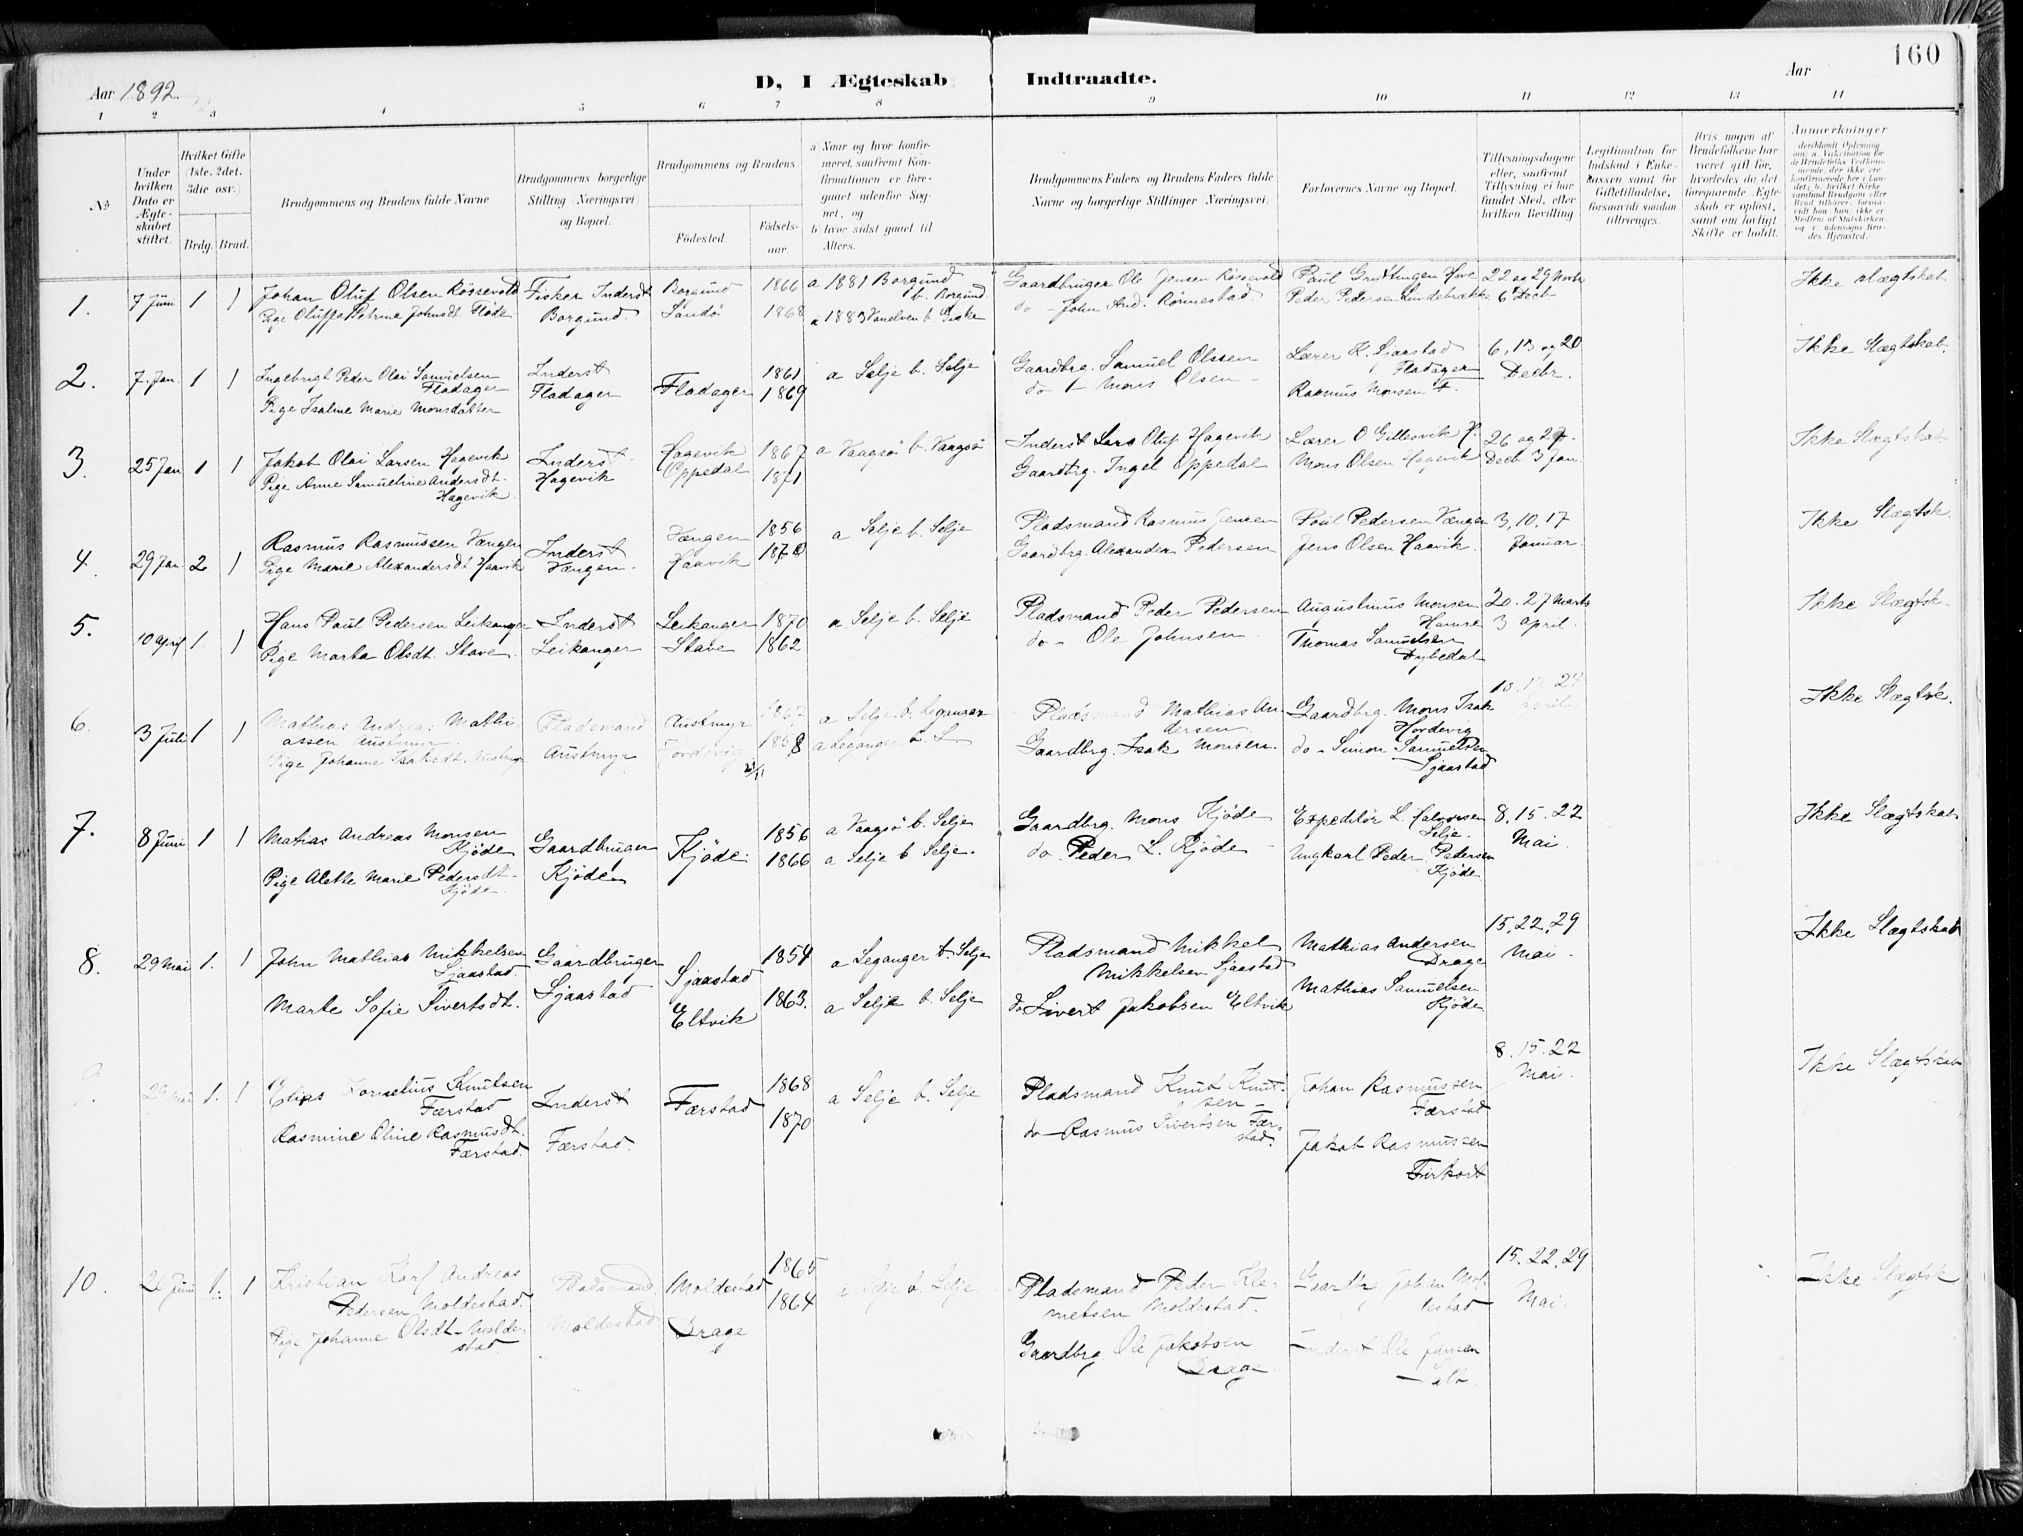 160
Aar 1892.
D, I Ægteskab Indtraadte.
Aar
1 2 3 4 5 6 7 8 9 10 11 12 13 14
No
Under hvilken Dato er Ægteskabet stiftet.
Hvilket Gifte (1ste, 2det, 3die osv.)
Brdg. Brud.
Brudgommens og Brudens fulde Navne
Brudgommens borgerlige Stilling (Næringsvei) og Bopæl.
Brudgommens og Brudens
Fødested.
Fødselsaar.
a Naar og hvor konfirmeret, saafremt Konfirmationen er foregaaet udenfor Sognet, og
b hvor sidst gaaet til Alters.
Brudgommens Faders og Brudens Faders fulde Navne og borgerlige Stillinger (Næringsvei)
Forlovernes Navne og Bopæl.
Tillysningsdagene eller, saafremt Tillysning ei har fundet Sted, efter hvilken Bevilling
Legitimation for Indskud i Enkekassen samt for Giftetilladelse, forsaavidt saadan tiltrænges.
Hvis nogen af Brudefolkene har været gift før, hvorledes da det foregaaende Ægteskab er opløst, samt om lovligt Skifte er holdt.
Anmærkninger
1. 7 Juni 1 1
Johan Oluf Olsen Røssevold
Pige Oluffa Petrine Johnsdt. Fløde
Fisker Inderst
Borgund.
Borgund 1866
Sandø 1868
a 1881 Borgund
b. Borgund
a 1883 Vanelven b. Giske
Gaardbruger Ole Jensen Røssevold
do - John And. Rønnestad
Paul Gruttingen Hove
Peder Pedersen Lindebrække
22 og 29 Novbr
6 Decb
Ikke Slægtskab
2. 7. Jan. 1 1
Ingebrigt Peder Olai Samuelsen
Fladager
Pige Isaline Marie Monsdatter
Inderst
Fladager
Fladager
1861
1869
a Selje b. Selje
Gaardbrg. Samuel Olssen
do † Mons Olsen -
Lærer K. Sjaastad
Fladager
Rasmus Monsen
6, 13 og 20
Decbr.
Ikke Slægtskab.
3. 25 Jan 1 1
Jakob Olai Larsen Hagevik
Pige Anne Samueline Andersdt.
Hagevik
Inderst
Hagevik
Hagevik 1867
Oppedal 1871
a Vaagsø b. Vaagsø
Inderst Lars Oluf Hagevik
Gaardbrg. Ingel Oppedal
Lærer O. Gillesvik H.
Mons Olsen Hagevik
26 og 27
Decb 3 Jan.
Ikke Slægtskab
4. 29 Jan. 2 1
Rasmus Rasmussen Vængen
Pige Marie Alexandersdt Haavik
Inderst
Vængen.
Vængen 1856
Haavik 1870
a Selje b. Selje
Pladsmand Rasmus Jensen
Gaardbrg. Alexander Pedersen
Poul Pedersen Vængen
Jens Olsen Haavik.
3, 10, 17
Januar.
Ikke Slægtsk.
5. 10 April 1. 1
Hans Paul Pedersen Leikanger
Pige Marta Olsdt. Stave.
Inderst
Leikanger
Leikanger 1870
Stave 1862
a Selje b. Selje
Pladsmand Peder Pedersen
do - Ole Johnsen
Augustinus Monsen
Hamre
Thomas Samuelsen
Dybedal
20. 27 Marts
3 April.
Ikke Slægtsk.
6. 3 Juli 1 1
Mathias Andreas Mathiassen Austmyr.
Pige Johanne Isaksdt. Austmyr
Pladsmand
Austmyr
Austmyr 1867
Hordevig 1858
a Selje b. Leganger
a Leganger b. L
Pladsmand Mathias Andersen.
Gaardbrg. Isak Monsen.
Gaardbrg. Mons Isak
Hordevig
do - Simon Samuelsen
Sjaastad
10. 17 24
April
Ikke Slægtsk.
7. 8 Juni 1 1
Mathias Andreas Monsen
Kjøde
Pige Alette Marie Pedersdt.
Kjøde.
Gaardbruger
Kjøde
Kjøde
1856
1866
a Vaagsø b. Selje
a Selje b Selje.
Gaardbrg. Mons Kjøde
do. Peder L. Kjøde -
Expeditør L. Halvorsen
Selje.
Ungkarl Peder Pedersen
Kjøde
8. 15. 22
Mai.
Ikke Slægtskab
8. 29 Mai 1. 1
John Mathias Mikkelsen
Sjaastad
Marte Sofie Sivertsdt.
Gaardbruger
Sjaastad
Sjaastad 1854
Eltvik 1863.
a Leganger b. Selje
a Selje b. Selje
Pladsmand Mikkel
Mikkelsen Sjaastad
do Sivert Jakobsen Eltvik
Mathias Andersen
Drage
Mathias Samuelsen
Kjøde
15, 22, 29
Mai.
Ikke Slægtskab
9. 29 Mai 1. 1
Elias Kornelius Knutsen
Færstad
Rasmine Oline Rasmusdt.
Færstad.
Inderst
Færstad.
Færstad
1868
1870
a Selje b. Selje
Pladsmand Knut Knutsen -
do - Rasmus Sivertsen Færstad.
Johan Rasmussen
Færstad
Jakob Rasmussen
8. 15. 22
Mai.
Ikke Slægtskab
10. 26 Juni 1. 1
Kristian Karl Andreas
Pedersen Moldestad.
Pige Johanne Olsdt. Moldestad
Pladsmand
Moldestad
Moldestad
Drage
1865
1864
a Selje b. Selje
Pladsmand Peder Klemetsen Moldestad.
Gaardbrg. Ole Jakobsen
Drage
Gaardbrg. Johan Moldestad
Inderst Ole Jansen
15. 22, 29
Mai.
Ikke Slægtsk